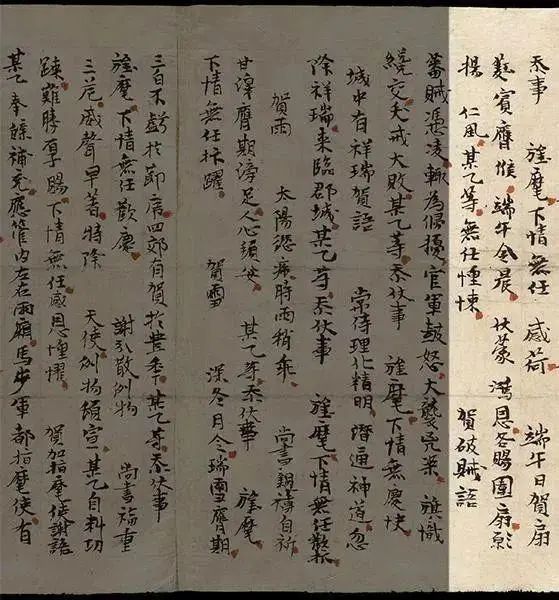 忝事 旌麾下情無任 感荷 端午日賀扇
蕤賓膺候端午令晨 伏蒙 鴻恩各賜團扇願
揚 仁風某乙等無任惶悚 賀破賊語
蕃賊憑凌輒為侵擾官軍皷怒大襲兇渠旗幟
繞交夭戎大敗某乙等忝伏事 旌麾下情無慶快
城中有祥瑞賀語 常侍理化精明潛通神道忽
除祥瑞来臨郡城某乙等忝伏事 旌麾下情無任歡抃
賀雨 太陽愆時雨稍乖 尚書親禱自祈
甘澤膺期滂足人心頓安 某乙等忝伏事 旌麾
下情無任抃躍 賀雪 深冬月令瑞雪膺期
三白不虧於節序四郊有賀於豊年某乙等忝伏事
旌麾下情無任歡慶 謝散例物 尚書福重
三危威聲早著特降 天使例物傾宣某乙自料功
踈難勝厚賜下情無任感恩惶懼 賀加指麾使謝語
某乙奉牒補充應管内左右兩廂馬步軍都指麾使有